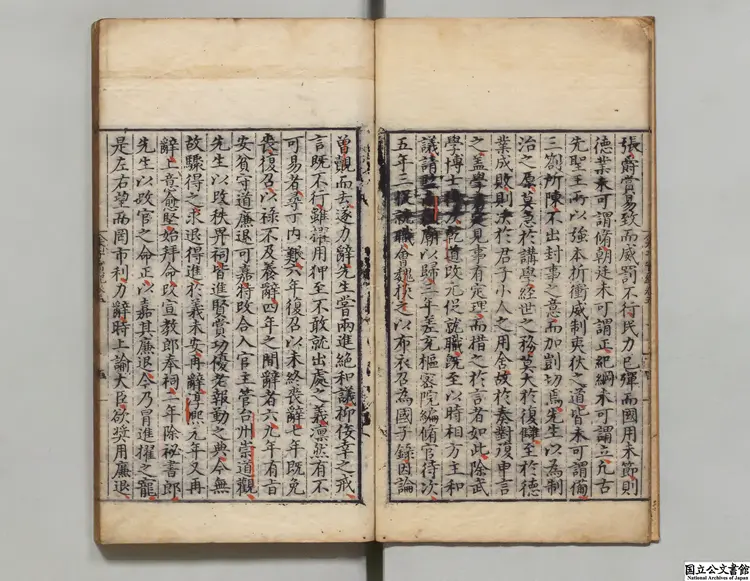 張爵賞易致而威罰不行民力已殫而國用未節則
德業未可謂脩朝廷未可謂正紀綱未可謂立凡古
先聖王所以強本折衝威制夷狄之道皆未可謂備
三劄所陳不出封事之意而加剴切焉先生以為制
治之原莫急於講學經世之務莫大於復讎至於德
業成敗則決於君子小人之用舍故於奏對復申言
之盖學見事有定理而措之於言者如此除武
學博士待次乾道改元促就職既至以時相方主和
議請監南嶽廟以歸三年差充樞密院編脩官待次
五年三促就職會魏掞之以布衣召為國子錄因論
曾覿而去遂力辭先生嘗兩進絕和議抑佞幸之戒
言既不行雖擢用狎至不敢就出處之義凛然有不
可易者尋丁内艱六年復召以未終喪辭七年既免
喪復召以祿不及養辭四年之間辭者六九年有旨
安貧守道廉退可嘉特改合入官主管台州崇道觀
先生以改秩畀祠皆進賢賞功優老報勤之典今無
故驟得之求退得進於義未安再辭淳熙元年又再
辭上意愈堅始拜命改宣教郎奉祠二年除祕書郎
先生以改官之命正以嘉其廉退今乃冒進擢之寵
是左右望而罔市利力辭時上諭大臣欲奬用廉退
国立公文書館
National Archives of Japan